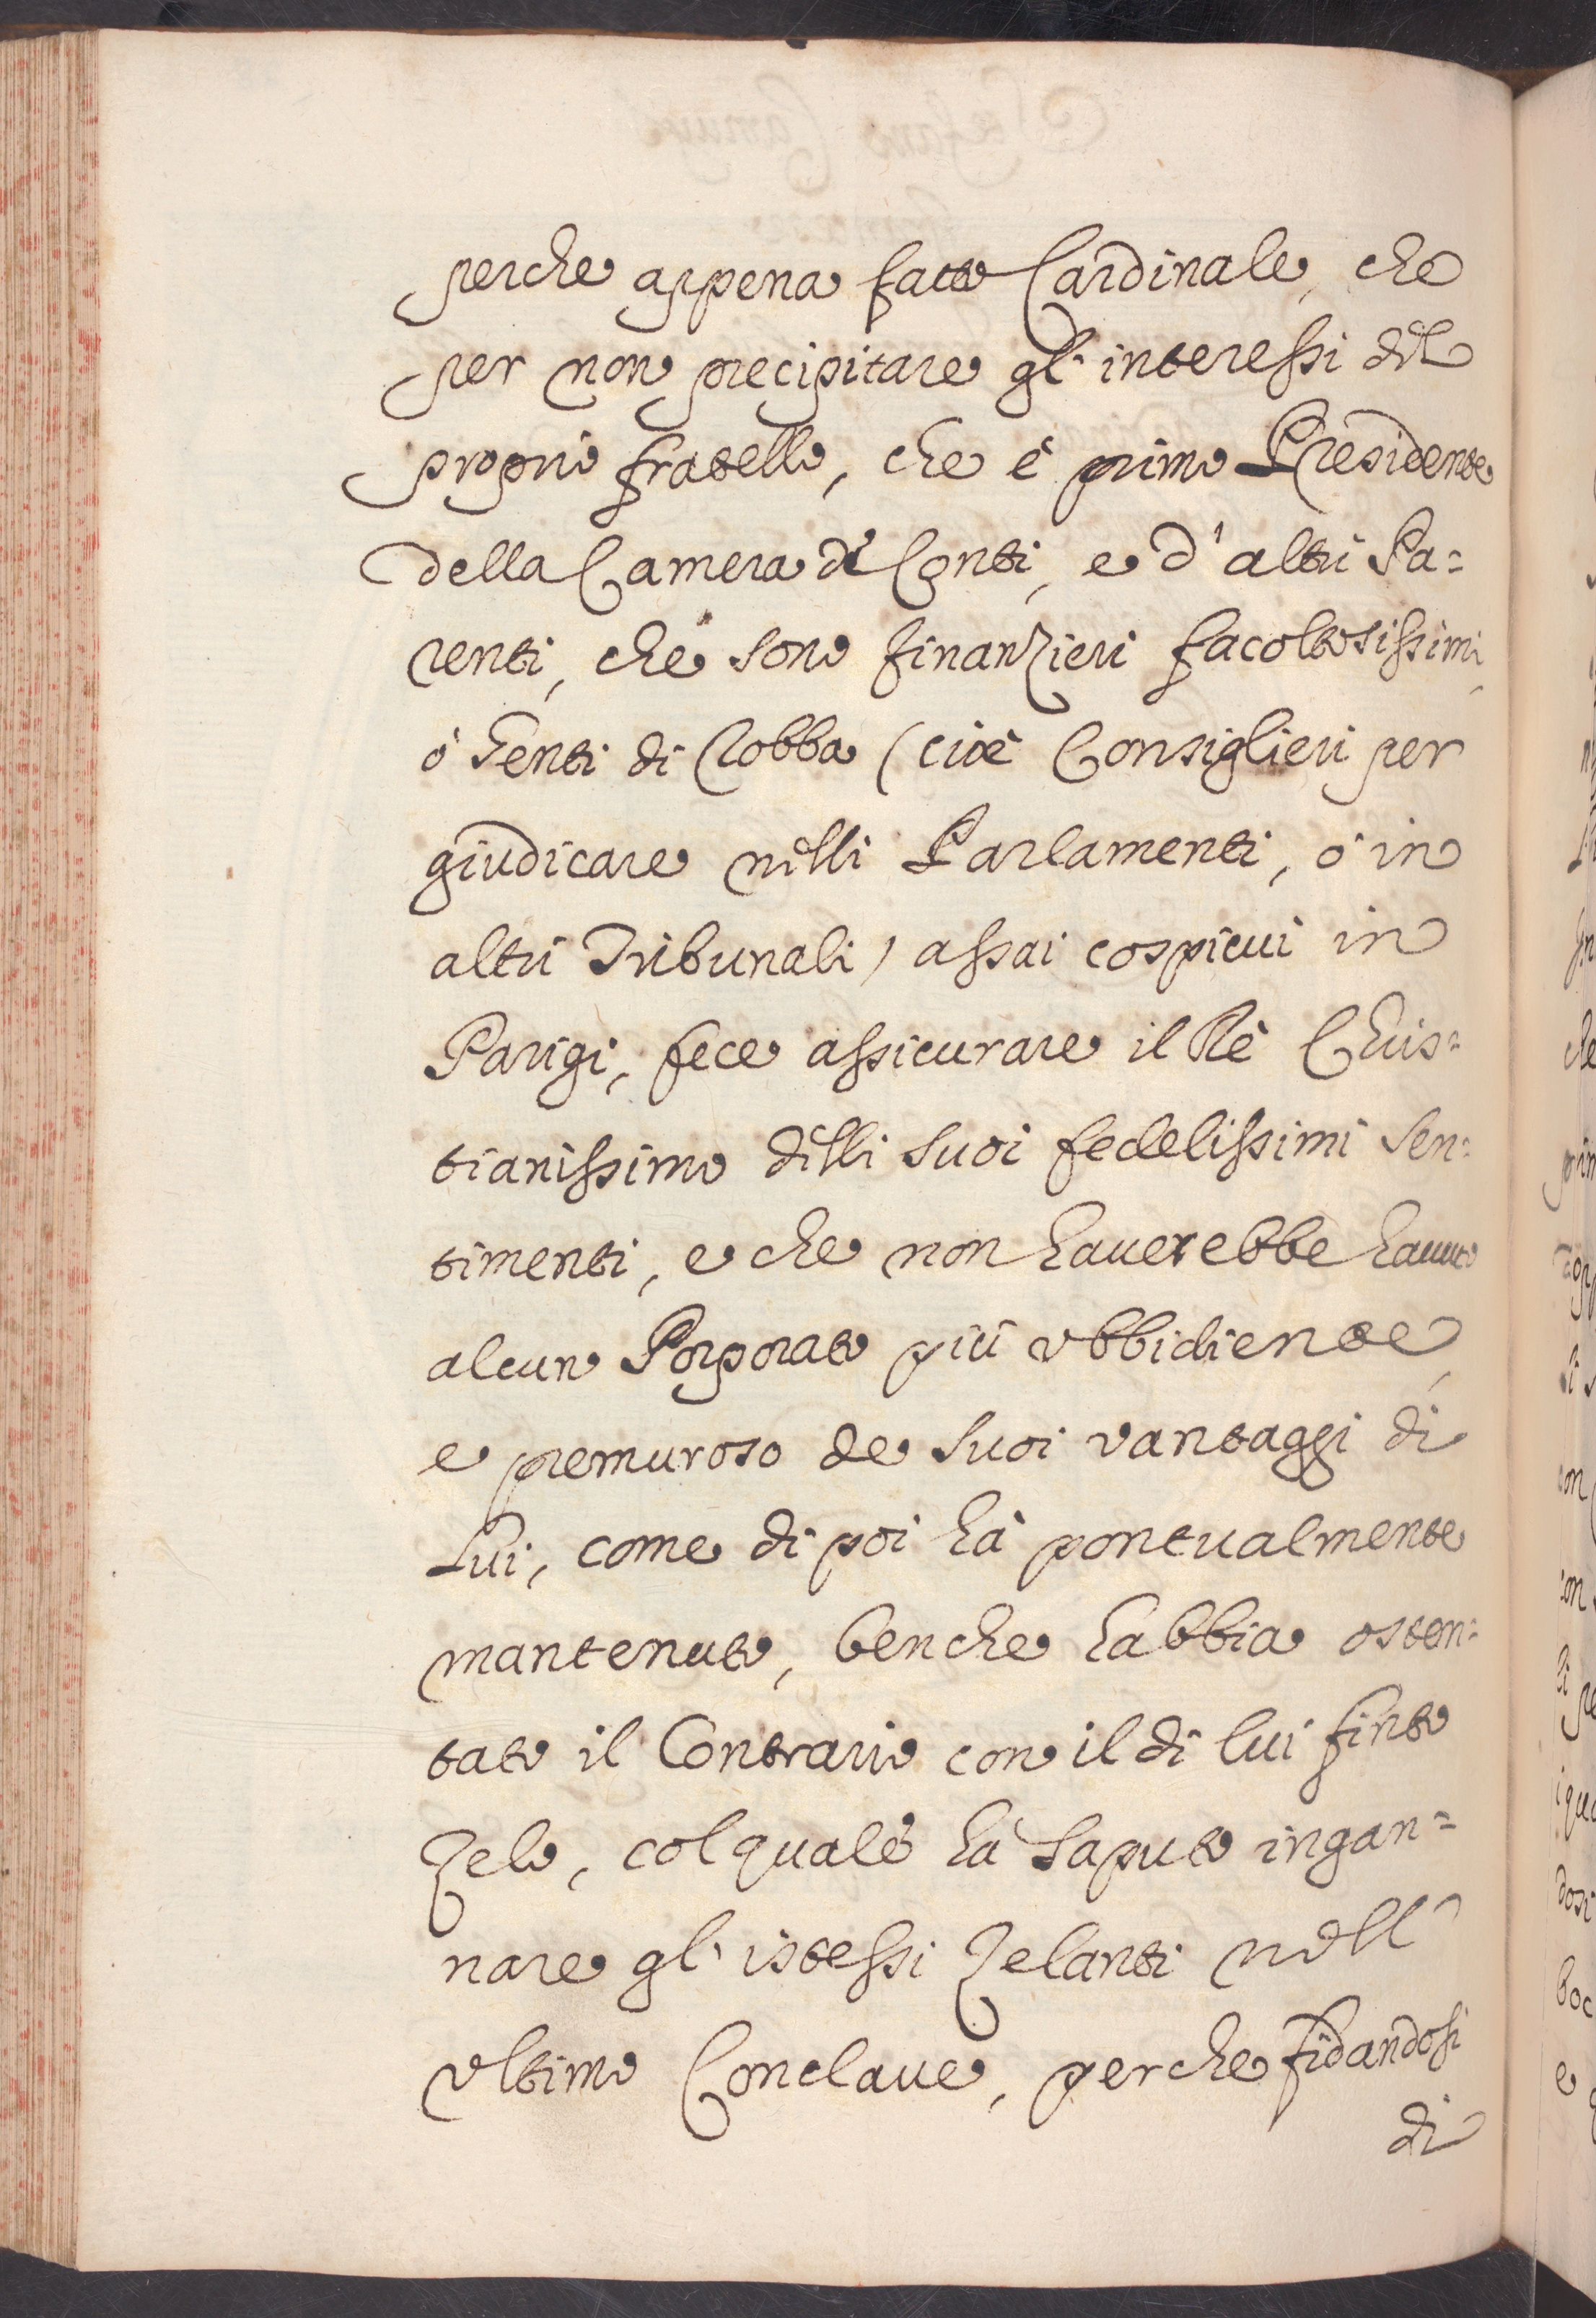 perche appena fatto Cardinale, che
per non precipitare gl'interessi dil
proprio fratello, che è primo Presidente
della Camera di Conti, e d'altri Pa=
renti, che sono finanzieri facoltosissimi,
ò Genti di Robba (cioè Consiglieri per
giudicare nilli Parlamenti, ò in
altri Tribunali) assai cospicui in
Parigi, fece assicurare il Rè Chris=
tianissimo dilli suoi fedelissimi sen=
timenti, e che non haverebbe hauuto
alcun Porporato più vbbidiente,
e premuroso de suoi vantaggi di
Lui, come di poi hà pontualmente
mantenuto, benche habbia osten=
tato il Contrario con il di lui finto
Zelo, col quale hà saputo ingan=
nare gl'istessi Zelanti nell'
vltimo Conclaue, perche fidandosi
di